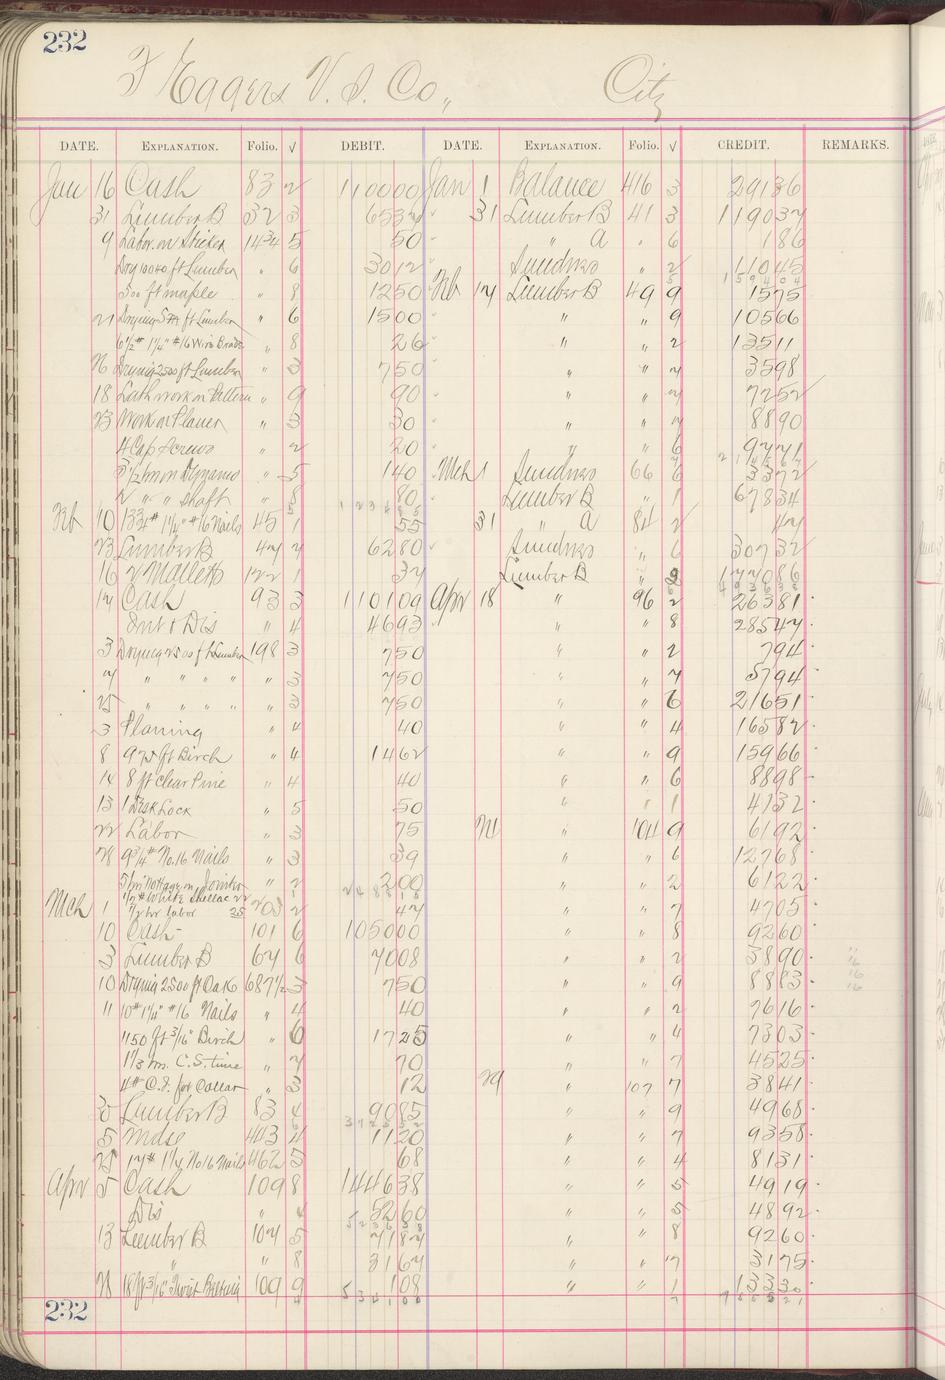 232
F Eggers V. S. Co., City
DATE. EXPLANATION. Folio. √ DEBIT. DATE. EXPLANATION. Folio. √ CREDIT. REMARKS.
Jan 16 Cash 83 2 110000 Jan 1 Balance 416 3 29136
31 Lumber B 32 3 31 Lumber B 41 3 119037
9 Labor on Sticker 5 50 " a " 6 186
Dry 10040 ft Lumber " 6 3012 Sundries " 2 11045
500 ft maple " 8 1250 Feb 17 Lumber B 49 9 1575
21 Drying ft Lumber " 6 1500 " " 9 10566
6 1/2# 1 1/4" #16 Wire Brads " 8 26 " " 2 13511
Drying 2500 ft Lumber " 3 750 " " 7 3598
18 Lath work on Pattern " 9 90 " " 7 7252
23 Work on Planer " 3 30 " " 7 8890
4 Cap Screws " 2 20 " " 6 9771
3 1/2 hrs on Dynamo " 5 140 Mch 1 Sundries 66 6 3372
2 " " shaft " 8 80 Lumber B " 1 67834
Feb 10 13 3/4# 1 1/4" #16 Nails 45 1 55 31 " a 84 2 47
23 Lumber B 47 7 6280 Sundries " 6 30732
16 2 Mallets 122 1 37 Lumber B " 9 177086
17 Cash 93 3 110109 Apr 18 " 96 2 26381
Int & Dis " 4 4693 " " 8 28547
3 Drying 2500 ft Lumber 198 3 750 " " 2 794
7 " " " " " 3 750 " " 7 5794
25 " " " " " 3 750 " " 6 21651
3 Planing " 4 40 " " 4 16582
8 975 ft Birch " 4 1462 " " 9 15966
14 8 ft Clear Pine " 4 40 " " 6 8898
13 1 Desk Lock " 5 50 " " 1 4732
22 Labor " 3 75 24 " 104 9 6192
28 9 3/4# No. 16 Nails " 3 39 " " 6 12768
" 2 200 " " 2 6122
1/2# White Shellac 22
Mch 1 1/2 hr labor 25 203 2 47 " " 7 4705
10 Cash 101 6 105000 " " 8 9260
3 Lumber B 67 6 7008 " " 2 3890
10 Drying 2500 ft Oak 687 1/2 3 750 " " 9 8883
11 10# 1 1/4" #16 Nails " 4 40 " " 2 7616
1150 ft 3/16" Birch " 6 1725 " " 4 7303
1 1/3 hrs. C.S. time " 7 70 " " 7 4525
4# C.I. for Collar " 3 12 29 " 107 7 3841
Lumber B 83 4 9085 " " 9 4968
5 Mdse 443 4 1120 " " 7 9358
25 17# 1 1/4 No 16 Nails 462 5 68 " " 4 8131
Apr 5 Cash 109 8 144638 " " 5 4919
Dis " 5260 " " 5 4892
13 Lumber B 107 5 7187 " " 8 9260
" " 8 3167 " " 7 3175
18 ft 3/16" 109 9 108 " " 1 13330
232